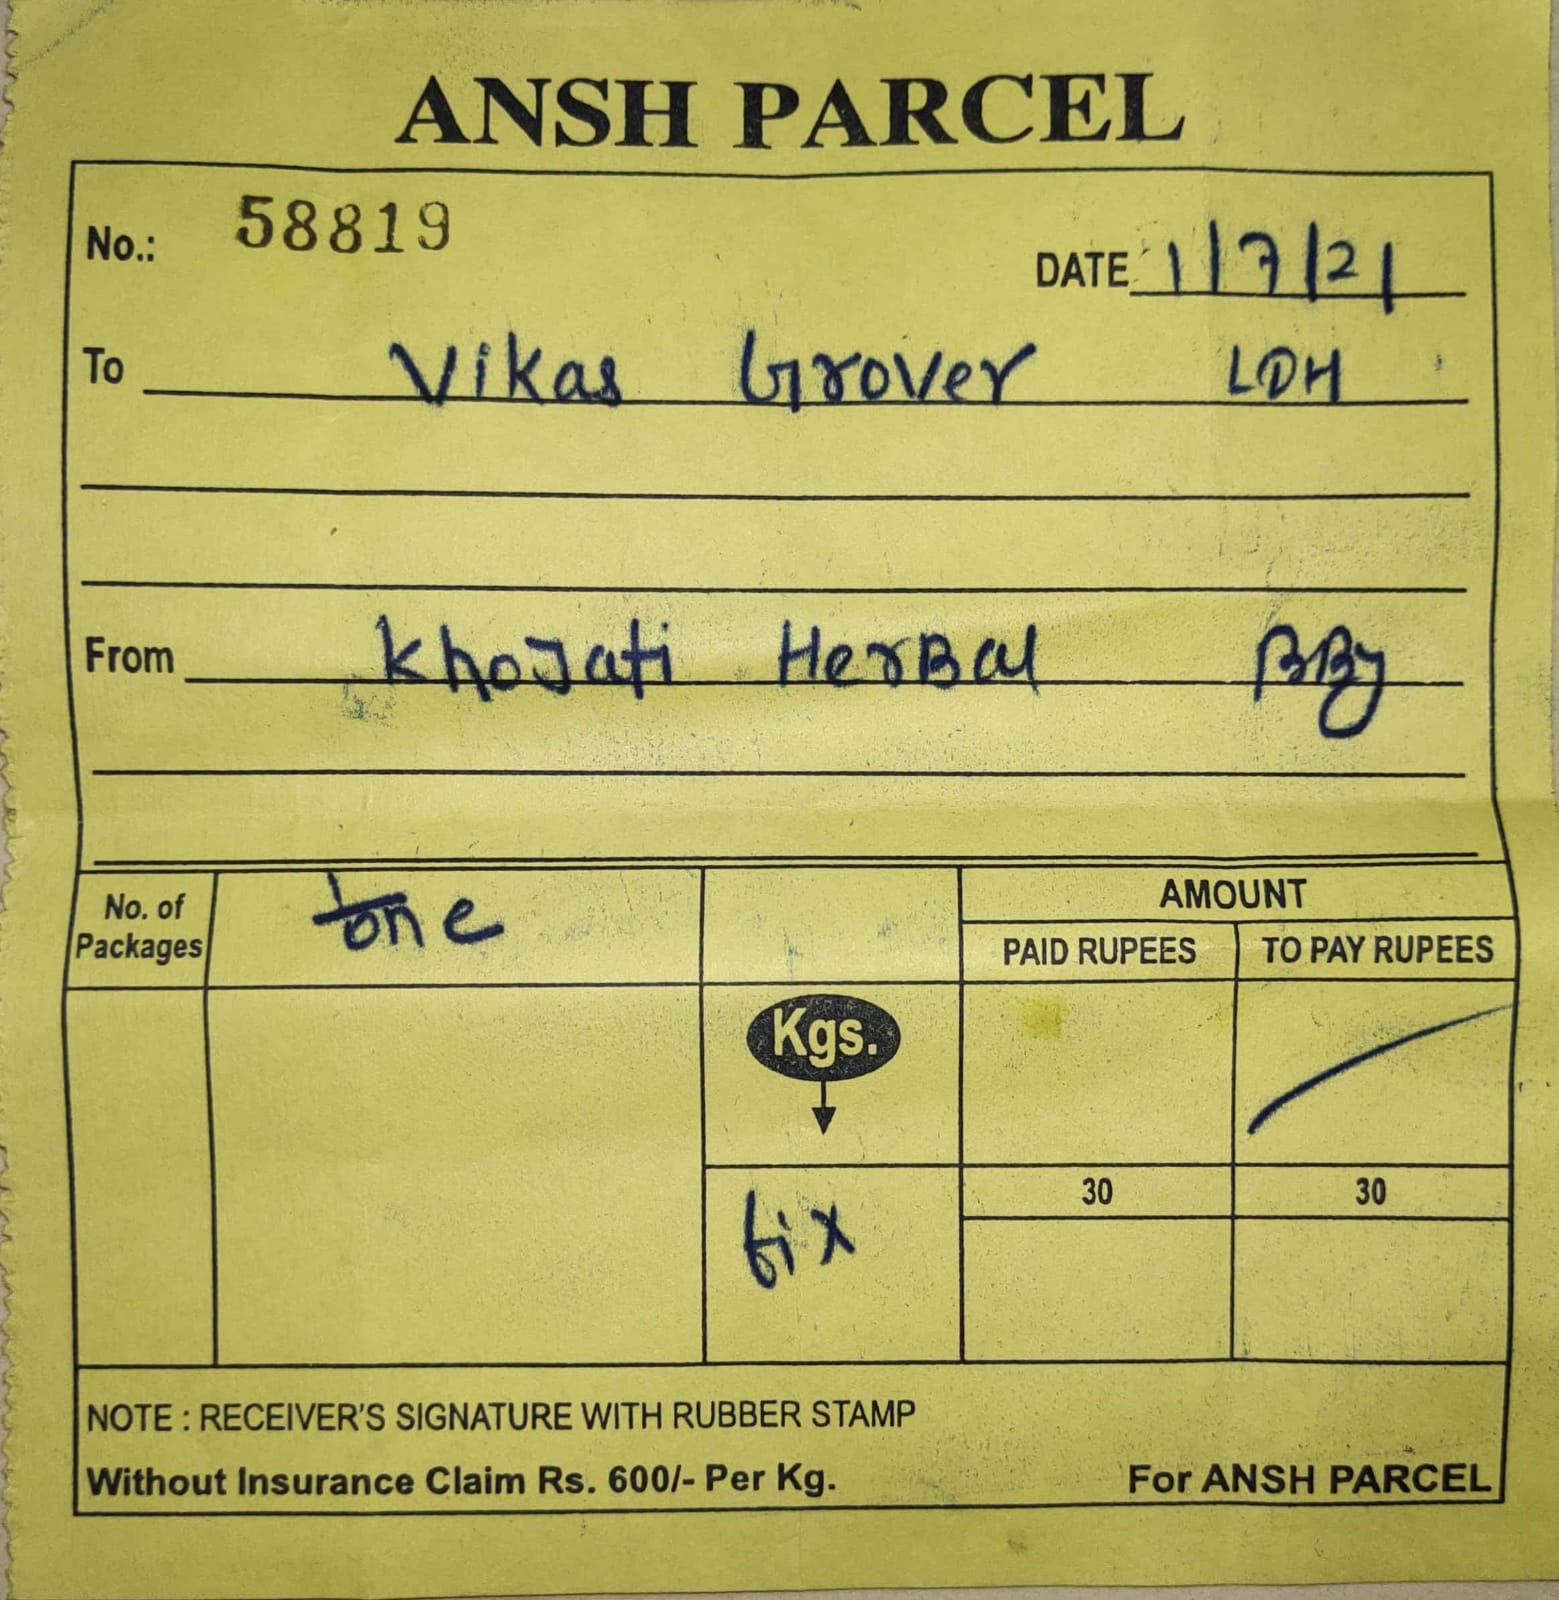 ANSH PARCEL
No.: 58819
DATE 1/7/21
To Vikas Grover LDH
From KhoJati HerBal BBy
No. of Packages
1/one
AMOUNT
PAID RUPEES TO PAY RUPEES
Kgs.
30 30
fix
NOTE : RECEIVER'S SIGNATURE WITH RUBBER STAMP
Without Insurance Claim Rs. 600/- Per Kg. For ANSH PARCEL